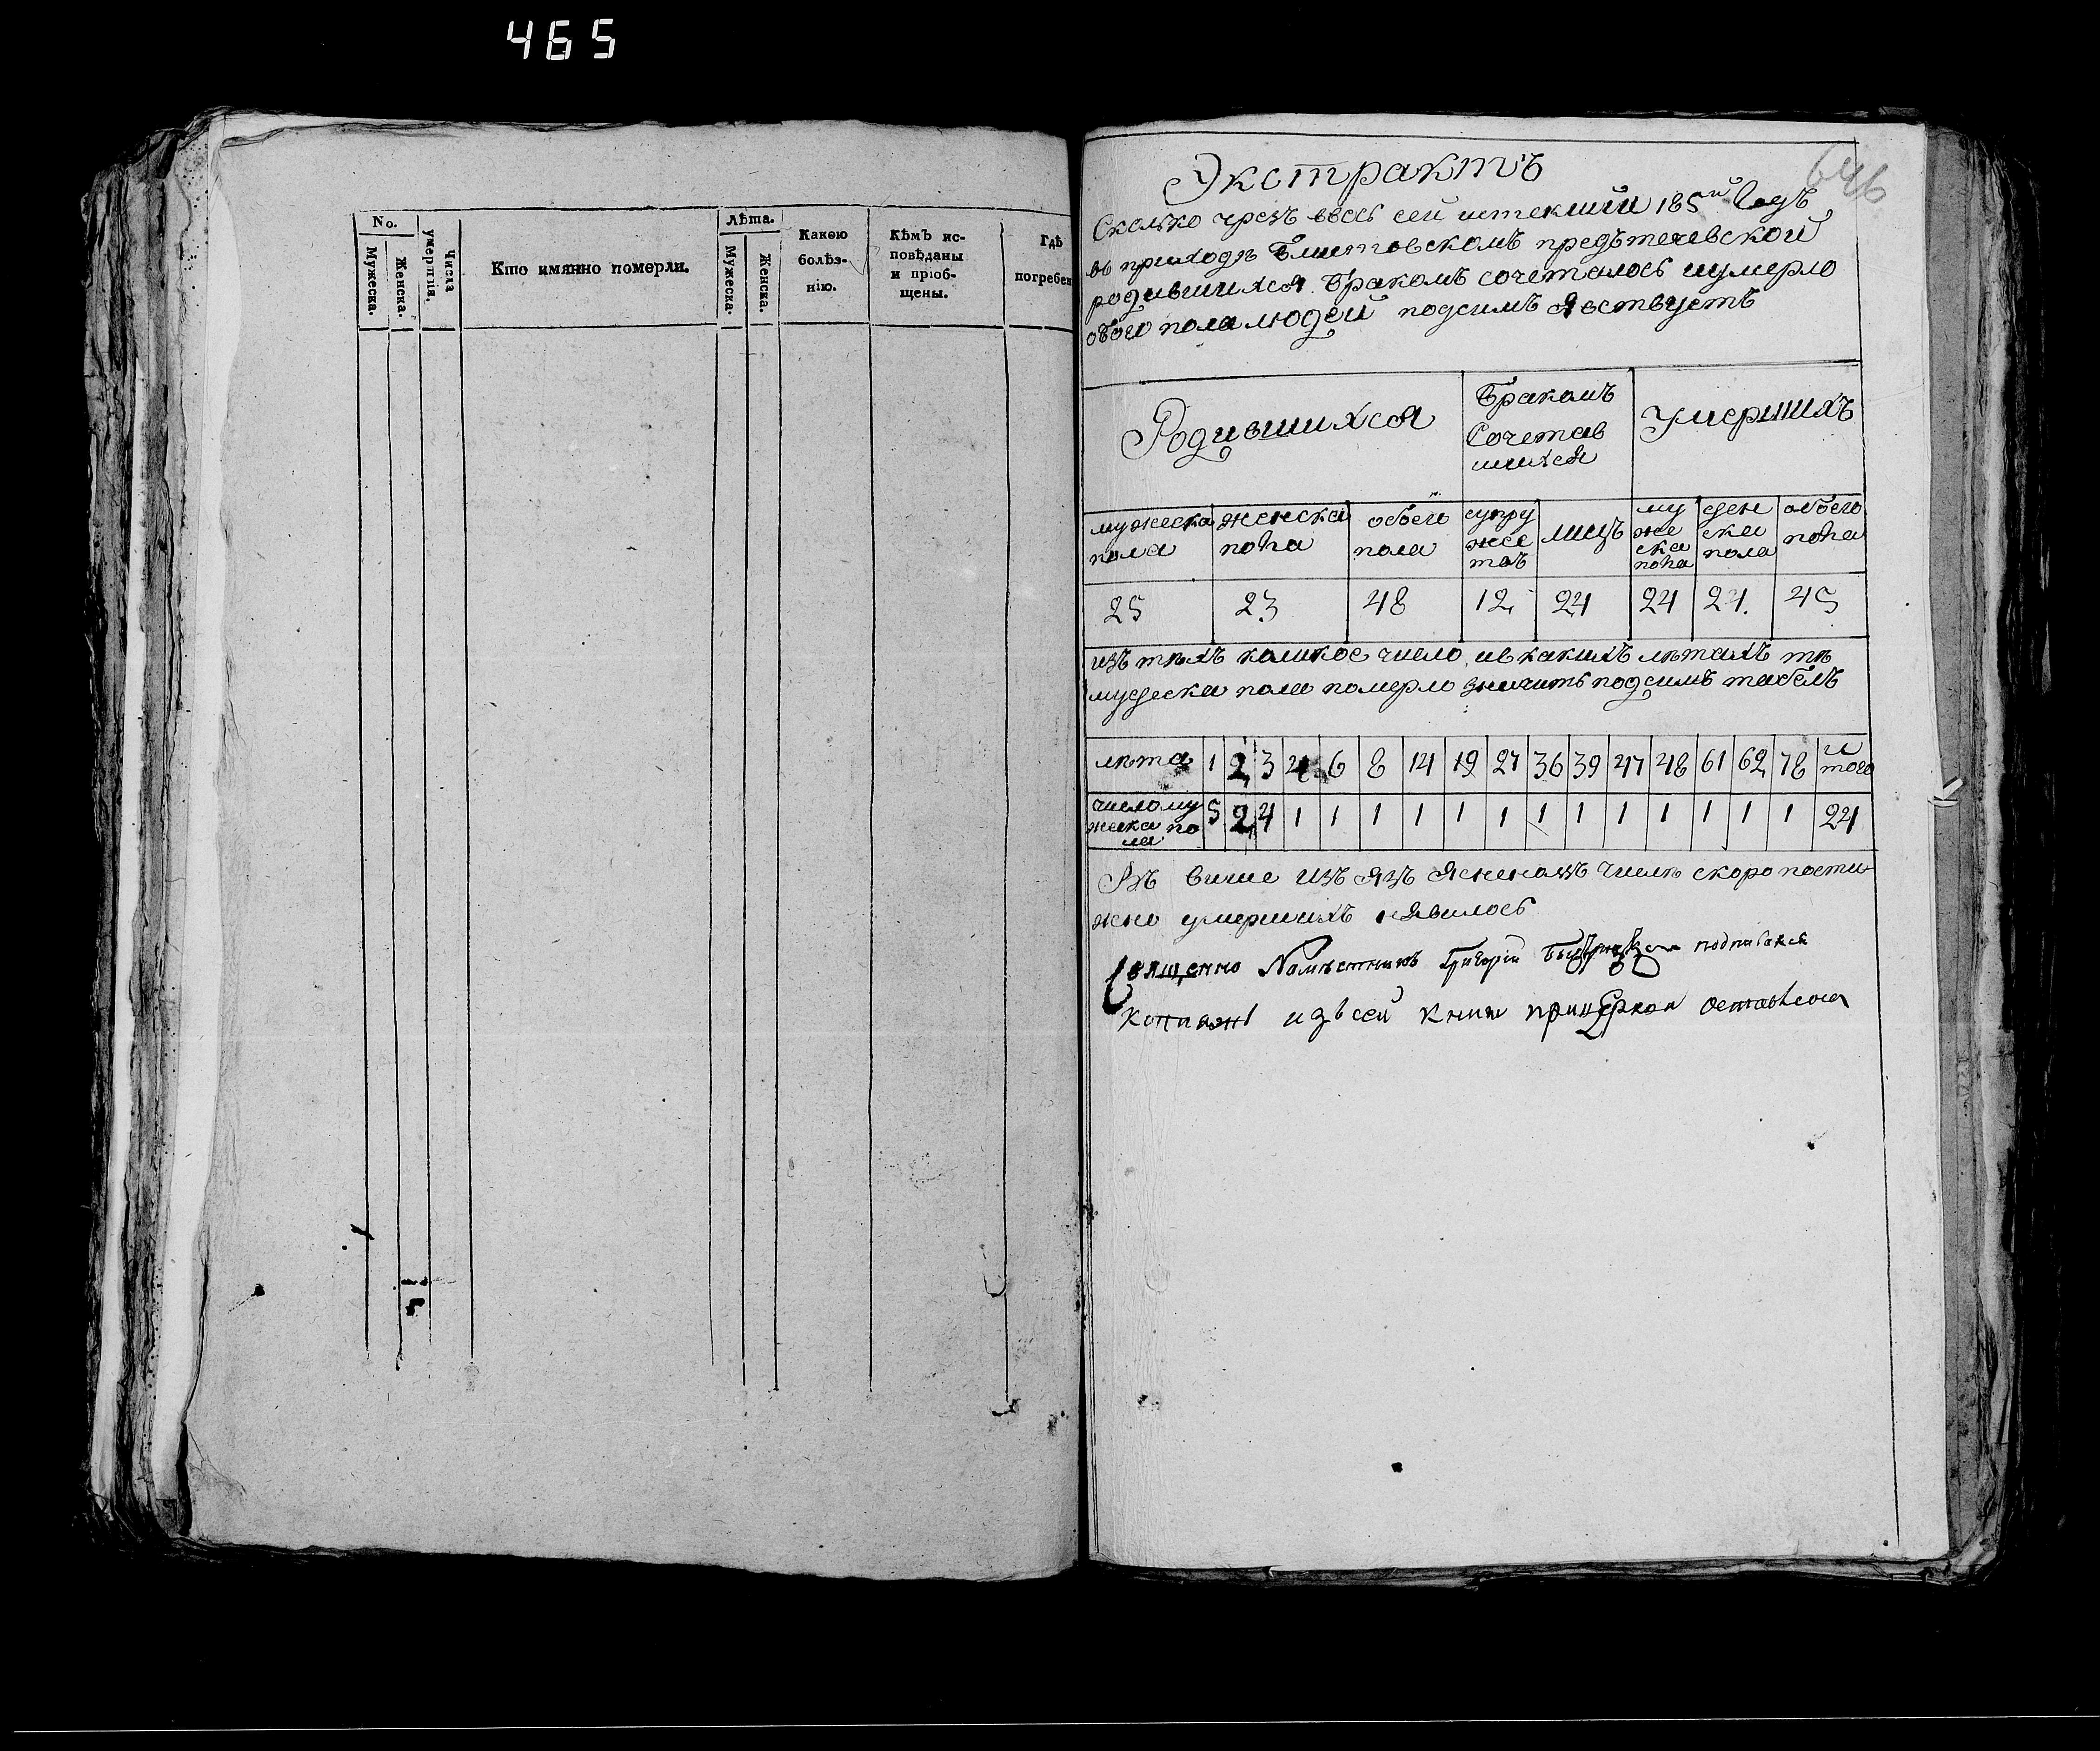 465
No.
Мужеска.
Женска.
Числа умертвія.
Кто имянно померли.
Лѣта.
Мужеска.
Женска.
Какою
болѣз-
нію.
Кѣмъ ис-
повѣданы
и пріоб-
щены.
Гдѣ
погребен
646
Экстрактъ
Сколько чрезъ ввесь сей истекший 185й Годъ
въ приходѣ предьтечевской
родившихся бракомъ сочеталось иумерло
обого пола людей подсимъ Явствуетъ
Родившихся
Бракомъ
Сочетав
шихся
Умершихъ
мужеска
пола
женска
пола
обоего
пола
супру
жес
твъ
лицъ
му
же
ска
пола
жен
ска
пола
обоего
пола
25 23 48 12 24 24 21. 45
изъ тѣхъ коликое число ивкакихъ лѣтахъ тѣ
мужеска пола померло значитъ подсимъ табелъ
лѣта 1 2 3 4 6 8 14 19 27 36 39 47 48 61 62 78 и того
число му
жеска по
ла 5 2 4 1 1 1 1 1 1 1 1 1 1 1 1 1 24
Въ више изъ числѣ скоропости
жно умершихъ неявилось
Священно Намѣстникъ Григорій подписался
Копия изъ сей книги прицеркви оставлена